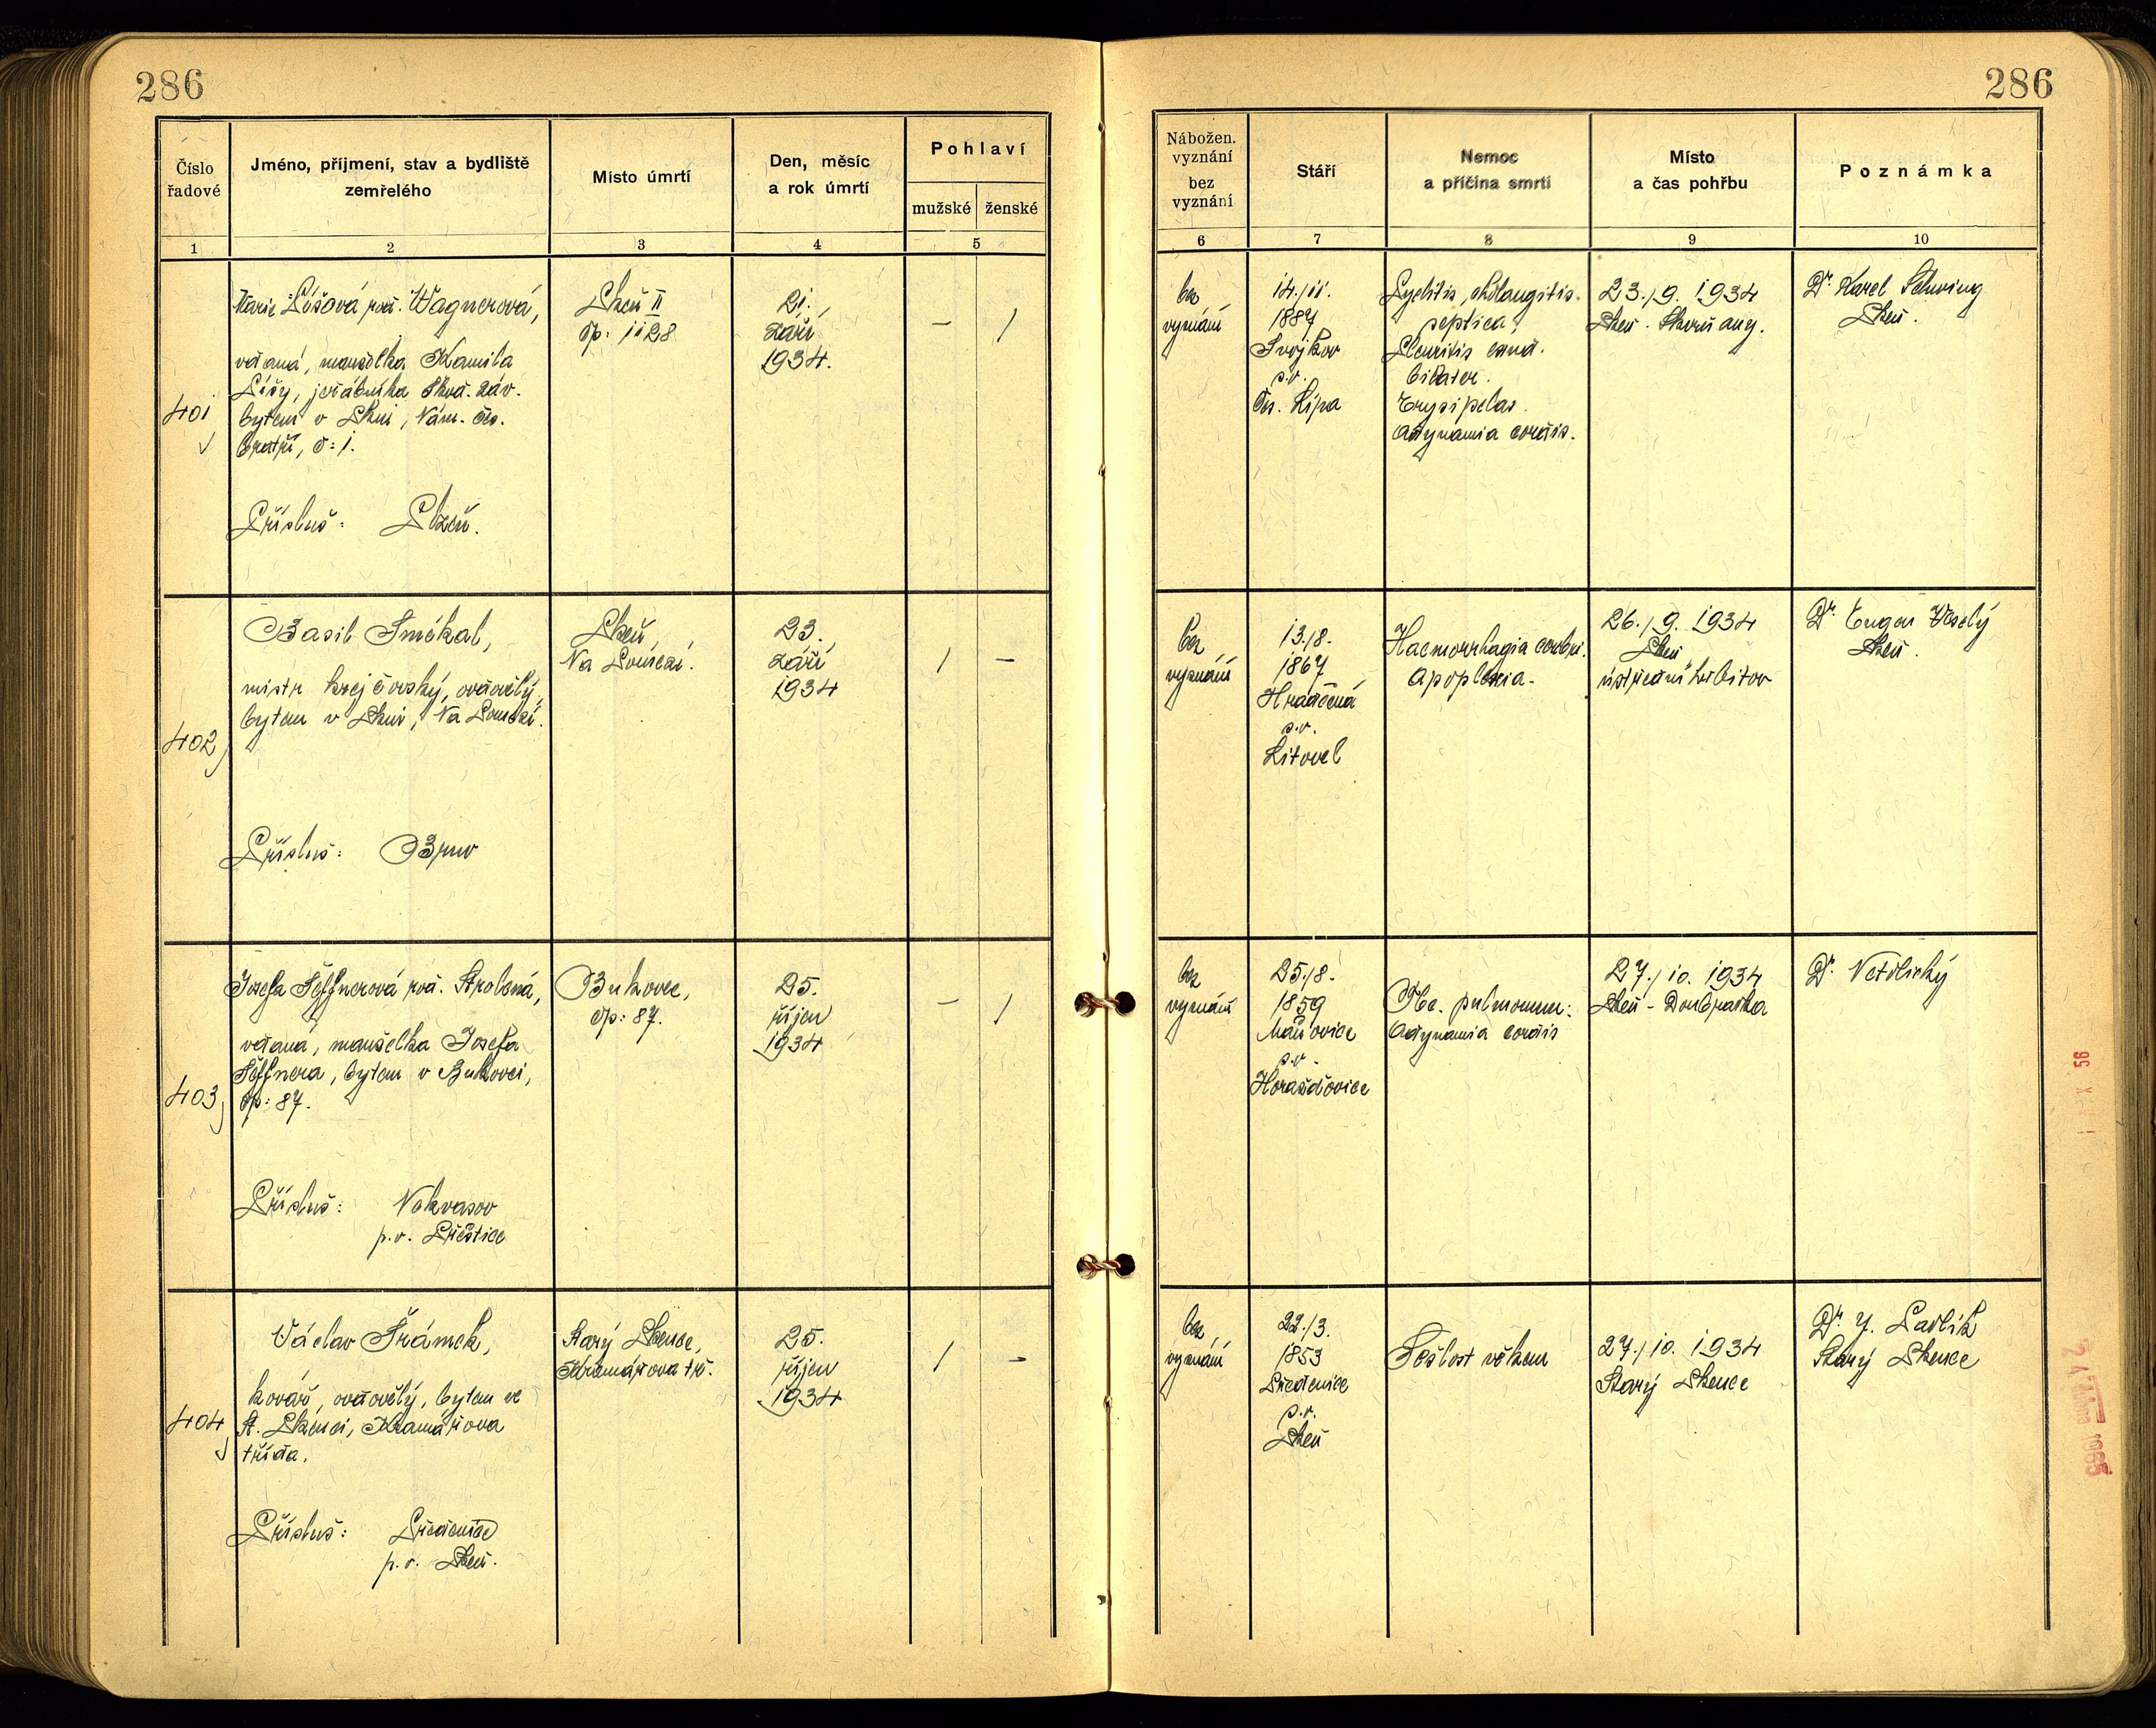 286
286
Číslo
řadové
Jméno, příjmení, stav a bydliště
zemřelého
Místo úmrtí
Den, měsíc
a rok úmrtí
Pohlaví
mužské
ženské
1
2
3
4
5
Nábožen.
vyznání
bez
vyznání
Stáří
Nemoc
a příčina smrti
Místo
a čas pohřbu
Poznámka
6
7
8
9
10
401
Marie Líšová roz. Wagnerová,
vdaná, manželka Kamila
Líšy, jeřábníka Škod. záv.
bytem v Plzni, Nám. čes.
bratří, č: 1.
Přísluš: Plzeň.
Plzeň II
čp: 1128
21.
září
1934.
–
/
bez
vyznání
14./11.
1887
Svojkov
p.v.
Čes. Lípa
Pyelitis, cholangitis
septica,
Pleuritis exud.
bilater.
Erysipelas.
Adynamia cordis.
23./9. 1934
Plzeň - Škvrňany.
Dr. Karel Schwing
Plzeň.
402
Basil Smékal,
mistr krejčovský, ovdovělý,
bytem v Plzni, Na Loučkách.
Přísluš: Brno
Plzeň,
23.
září
1934
/
–
bez
vyznání
13./8.
1867
Hradečná
p.v.
Litovel
Haemorrhagia cerebri.
Apoplexia.
26./9. 1934
Plzeň
ústřední hřbitov
Dr. Eugen Veselý
Plzeň.
403
Josefa Šéffnerová roz. Strolená,
vdaná, manželka Josefa
Šéffnera, bytem v Bukovci,
čp: 87.
Přísluš: Nekvasov
p.v. Přeštice
Bukovec,
čp: 87.
25.
říjen
1934
–
/
bez
vyznání
25./8.
1859
Maňovice
p.v.
Horažďovice
Tbc. pulmonum:
Adynamia cordis
27./10. 1934
Plzeň - Doubravka
Dr. Netolický
404
Václav Šrámek,
kovář, ovdovělý, bytem ve
St. Plzenci, Kramářova
třída.
Přísluš: Předenice
p.v. Plzeň.
Starý Plzenec,
Kramářova tř.
25.
říjen
1934
/
–
bez
vyznání
22./3.
1853
Předenice
p.v.
Plzeň
Sešlost věkem
27./10. 1934
Starý Plzenec
Dr. J. Pavlík
Starý Plzenec